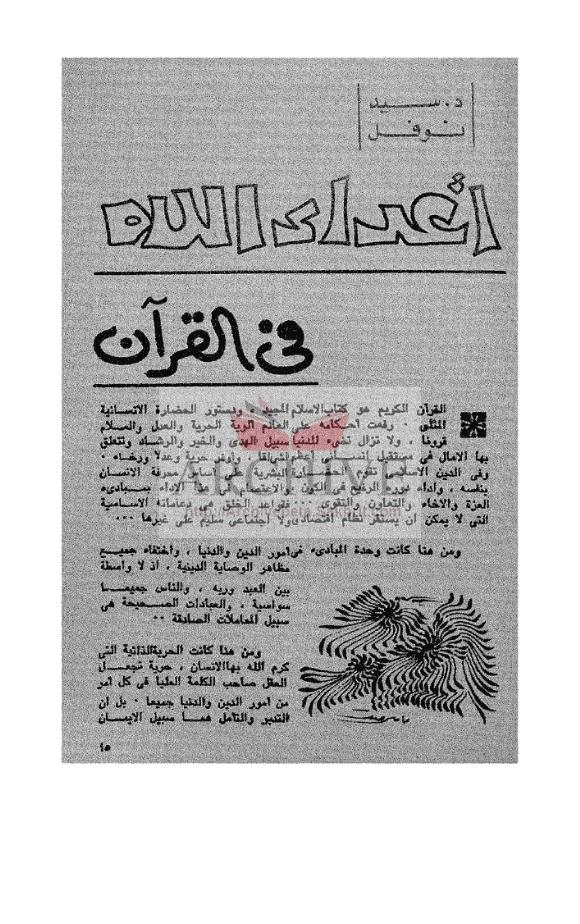 د. سيد
نوفل
أعداء الله
في القرآن
القرآن الكريم هو كتاب الاسلام المجيد ، ودستور الحضارة الانسانية
المثلى . رفعت أحكامه على العالم ألوية الحرية والعدل والسلام
قرونا ، ولا تزال تضيء للدنيا سبيل الهدى والخير والرشاد وتتعلق
بها الآمال في مستقبل إنساني أعظم اشراقا ، وأوفر حرية وعدلا ورخاء .
وفي الدين الاسلامي تقوم حضارة البشرية على أساس معرفة الانسان
بنفسه ، وأداء دوره الرفيع في الكون ، والاعتصام في هذا الأداء بمبادىء
العزة والاخاء والتعاون والتقوى . فقواعد الخلق هي دعاماته الأساسية
التي لا يمكن أن يستقر نظام اقتصادي ولا اجتماعي سليم على غيرها ...
ومن هنا كانت وحدة المبادىء في أمور الدين والدنيا ، واختفاء جميع
مظاهر الوصاية الدينية ، اذ لا واسطة
بين العبد وربه ، والناس جميعا
سواسية ، والعبادات الصحيحة هي
سبيل المعاملات الصادقة ..
ومن هنا كانت الحرية الذاتية التي
كرم الله بها الانسان ، حرية تجعل
العقل صاحب الكلمة العليا في كل أمر
من أمور الدين والدنيا جميعا . بل ان
التدبر والتأمل هما سبيل الايمان
١٥
ARCHIVE